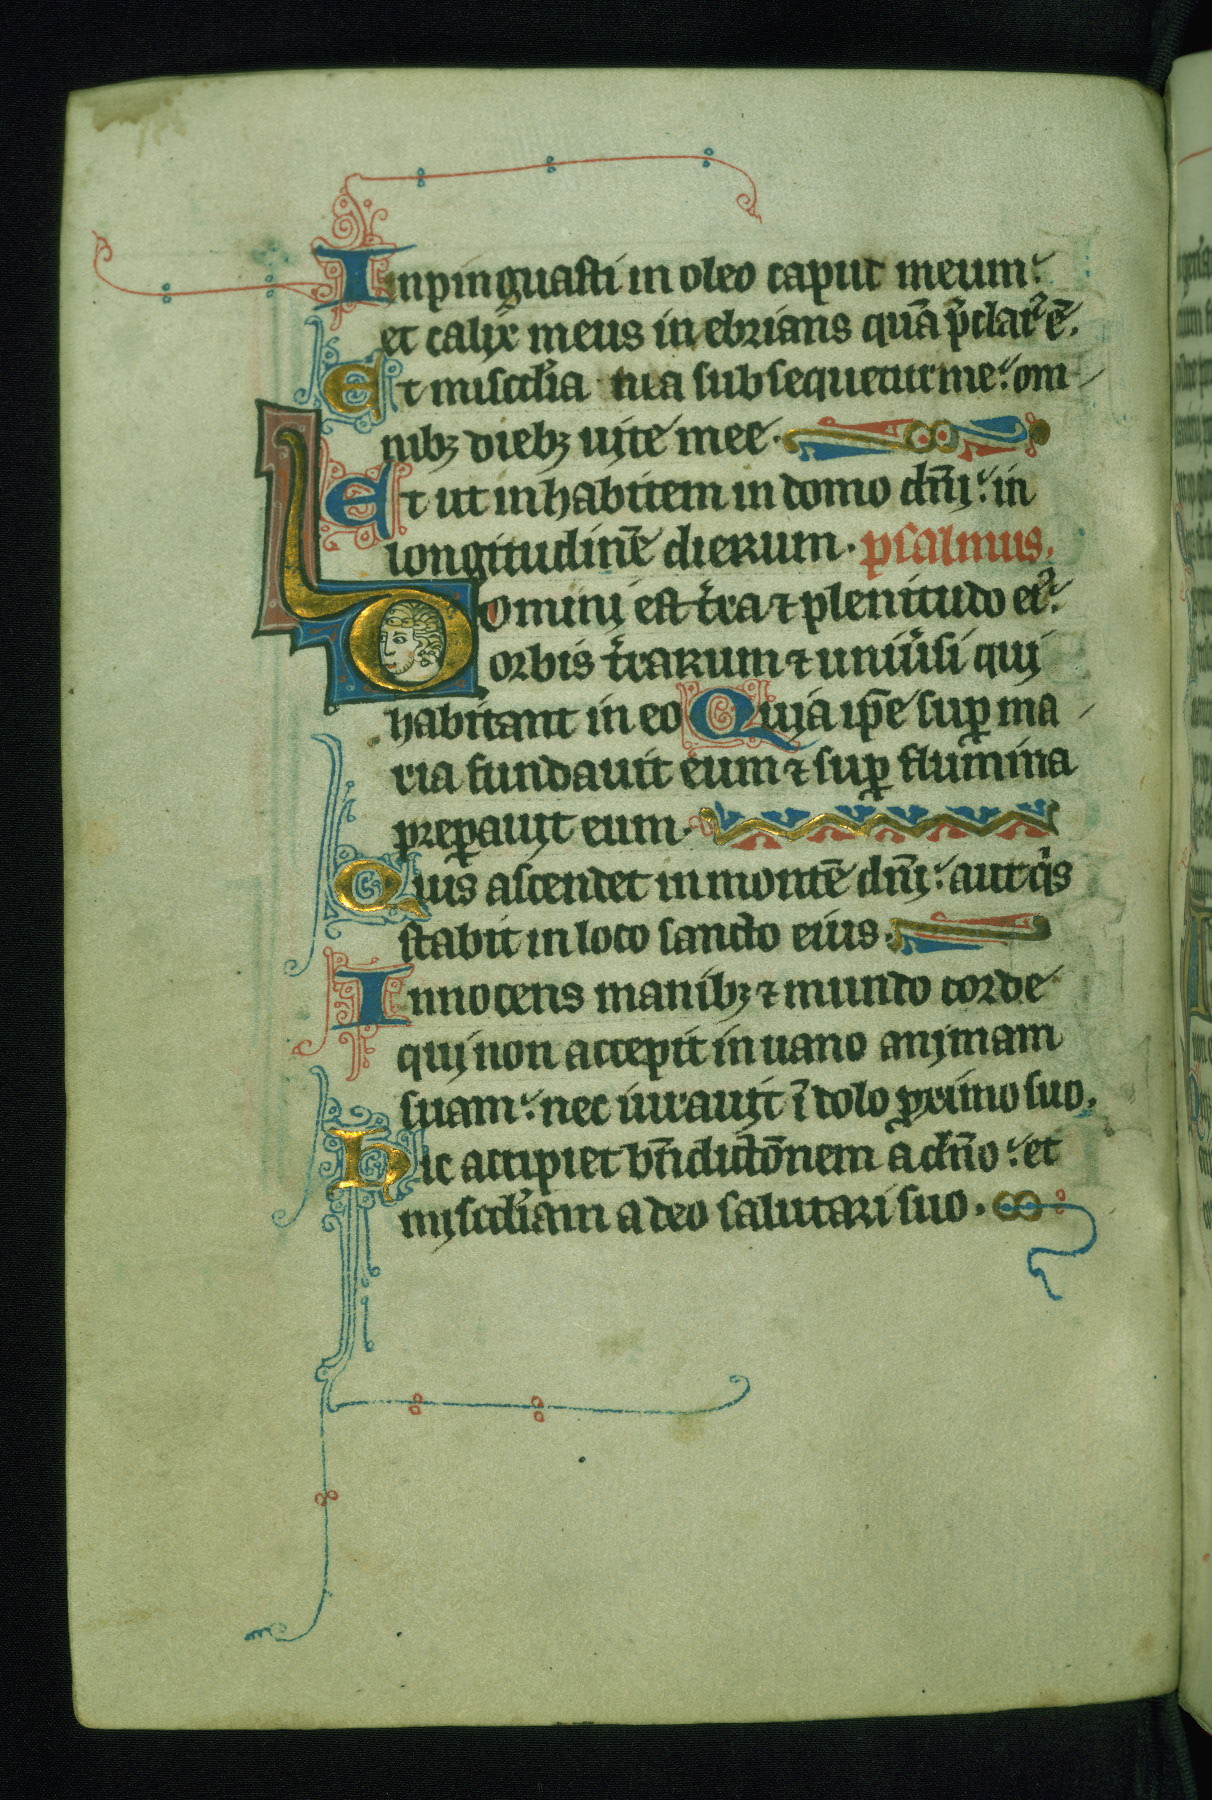 Inpinguasti in oleo caput meum:
et calix meus inebrians quā p̄clar᷒ ē.
Et misc̄dia tua subsequetur me: om
nibꝫ diebꝫ uite mee.
Et ut inhabitem in domo dn̄i: in
longitudinē dierum. psalmus.
Domini est t̄ra ⁊ plenitudo ei᷒:
orbis t̄rarum ⁊ uniu̓si qui
habitant in eo Quia ip̄e suꝑ ma
ria fundauit eum ⁊ suꝑ flumina
preꝑauit eum.
Quis ascendet in montē dn̄i: aut qͥs
stabit in loco sancto eius.
Innocens manibꝫ ⁊ mundo corde
qui non accepit in uano animam
suam: nec iurauit ī dolo ꝓximo suo.
Hic accipiet bn̄dictōnem a dn̄o: et
misc̄diam a deo salutari suo.